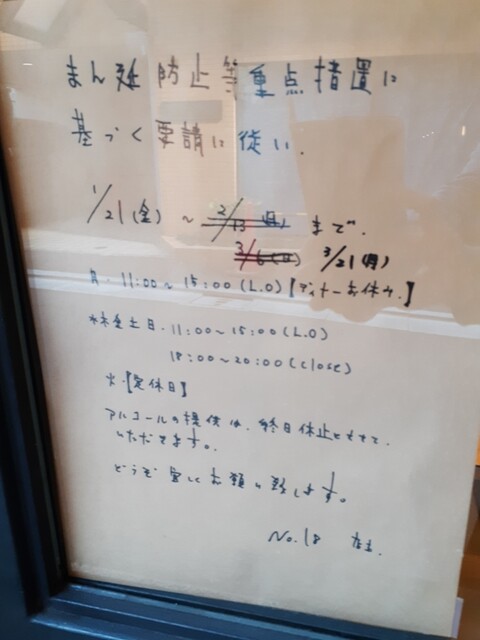 まん延防止等重点措置に
基づく要請に従い、
1/21(金)〜2/13(日)まで。
3/6(日) 3/21(月)
月・11:00〜15:00(L.O)【ディナーお休み。】
水木金土日・11:00〜15:00(L.O)
18:00〜20:00(close)
火・【定休日】
アルコールの提供は、終日休止とさせて
いただきます。
どうぞ宜しくお願い致します。
No.18 店主